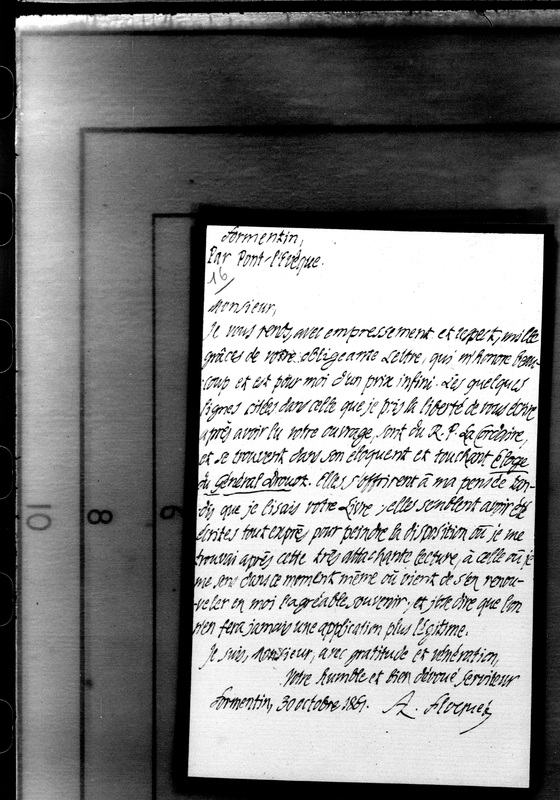 Formentin,
Par Pont-l'Evêque.
16
Monsieur,
Je vous rends, avec empressement et respect, mille
grâces de votre obligeante Lettre, qui m'honore beau-
coup et est pour moi d'un prix infini. Les quelques
lignes citées dans celle que je pris la liberté de vous écrire
après avoir lu votre ouvrage, sont du R. P. La Cordaire,
et se trouvent dans son éloquent et touchant éloge
du Général Drouot. Elles s'offrirent à ma pensée tan-
dis que je lisais votre Livre; elles semblent avoir été
écrites tout exprès pour peindre la disposition où je me
trouvai après cette très attachante lecture, à celle où je
me sens dans ce moment même où vient de s'en renou-
veler en moi l'agréable souvenir; et j'ose dire que l'on
n'en fera jamais une application plus légitime.
Je suis, Monsieur, avec gratitude et vénération,
Votre humble et bien dévoué serviteur
Formentin, 30 octobre 1861. A. Floquet
10
8
6